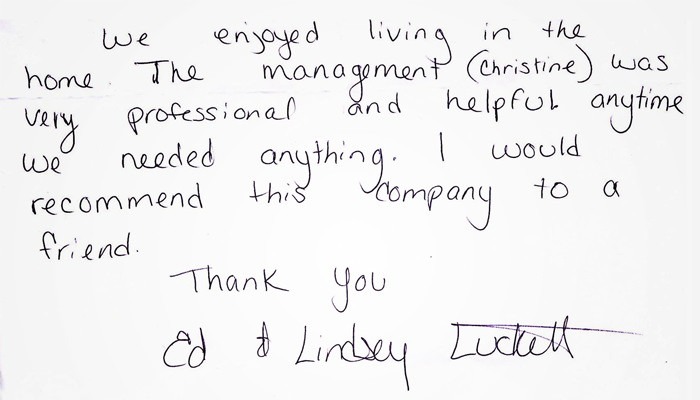 We enjoyed living in the
home. The management (Christine) was
very professional and helpful anytime
we needed anything. I would
recommend this company to a
friend.
Thank you
Ed & Lindsey Luckett